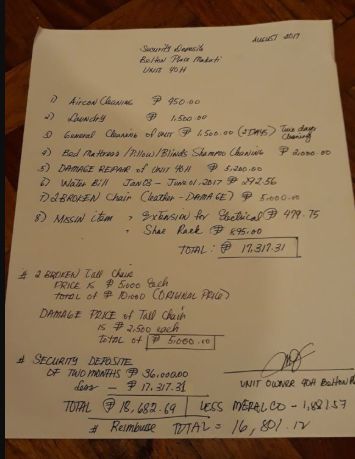 AUGUST 2017
Security Deposite
Bolton Place Makati
UNIT 40H
1) Aircon Cleaning ₱ 950.00
2) Laundry ₱ 1,500.00
3) General Cleaning of UNIT ₱ 1,500.00 (2 DAYS) Two days Cleaning
4) Bed Mattress / Pillow / Blinds Shampoo Cleaning ₱ 2,000.00
5) DAMAGE REPAIR of UNIT 40H ₱ 5,200.00
6) Water Bill JAN 03 - June 01, 2017 ₱ 292.56
7) 2 BROKEN Chair (Leather - DAMAGE) ₱ 5,000.00
8) Missin item > Extension for Electrical ₱ 479.75
> Shoe Rack ₱ 895.00
TOTAL: ₱ 17,317.31
# 2 BROKEN Tall Chair
PRICE is ₱ 5,000 Each
TOTAL of ₱ 10,000 (ORIGINAL PRICE)
DAMAGE PRICE of Tall Chair
is ₱ 2,500 each
TOTAL of ₱ 5,000.00
# SECURITY DEPOSITE
OF TWO MONTHS ₱ 36,000.00
Less - ₱ 17,317.31
UNIT OWNER 40H Bolton
TOTAL ₱ 18,682.69 LESS MERALCO - 1,881.57
# Reimburse TOTAL = 16,801.12